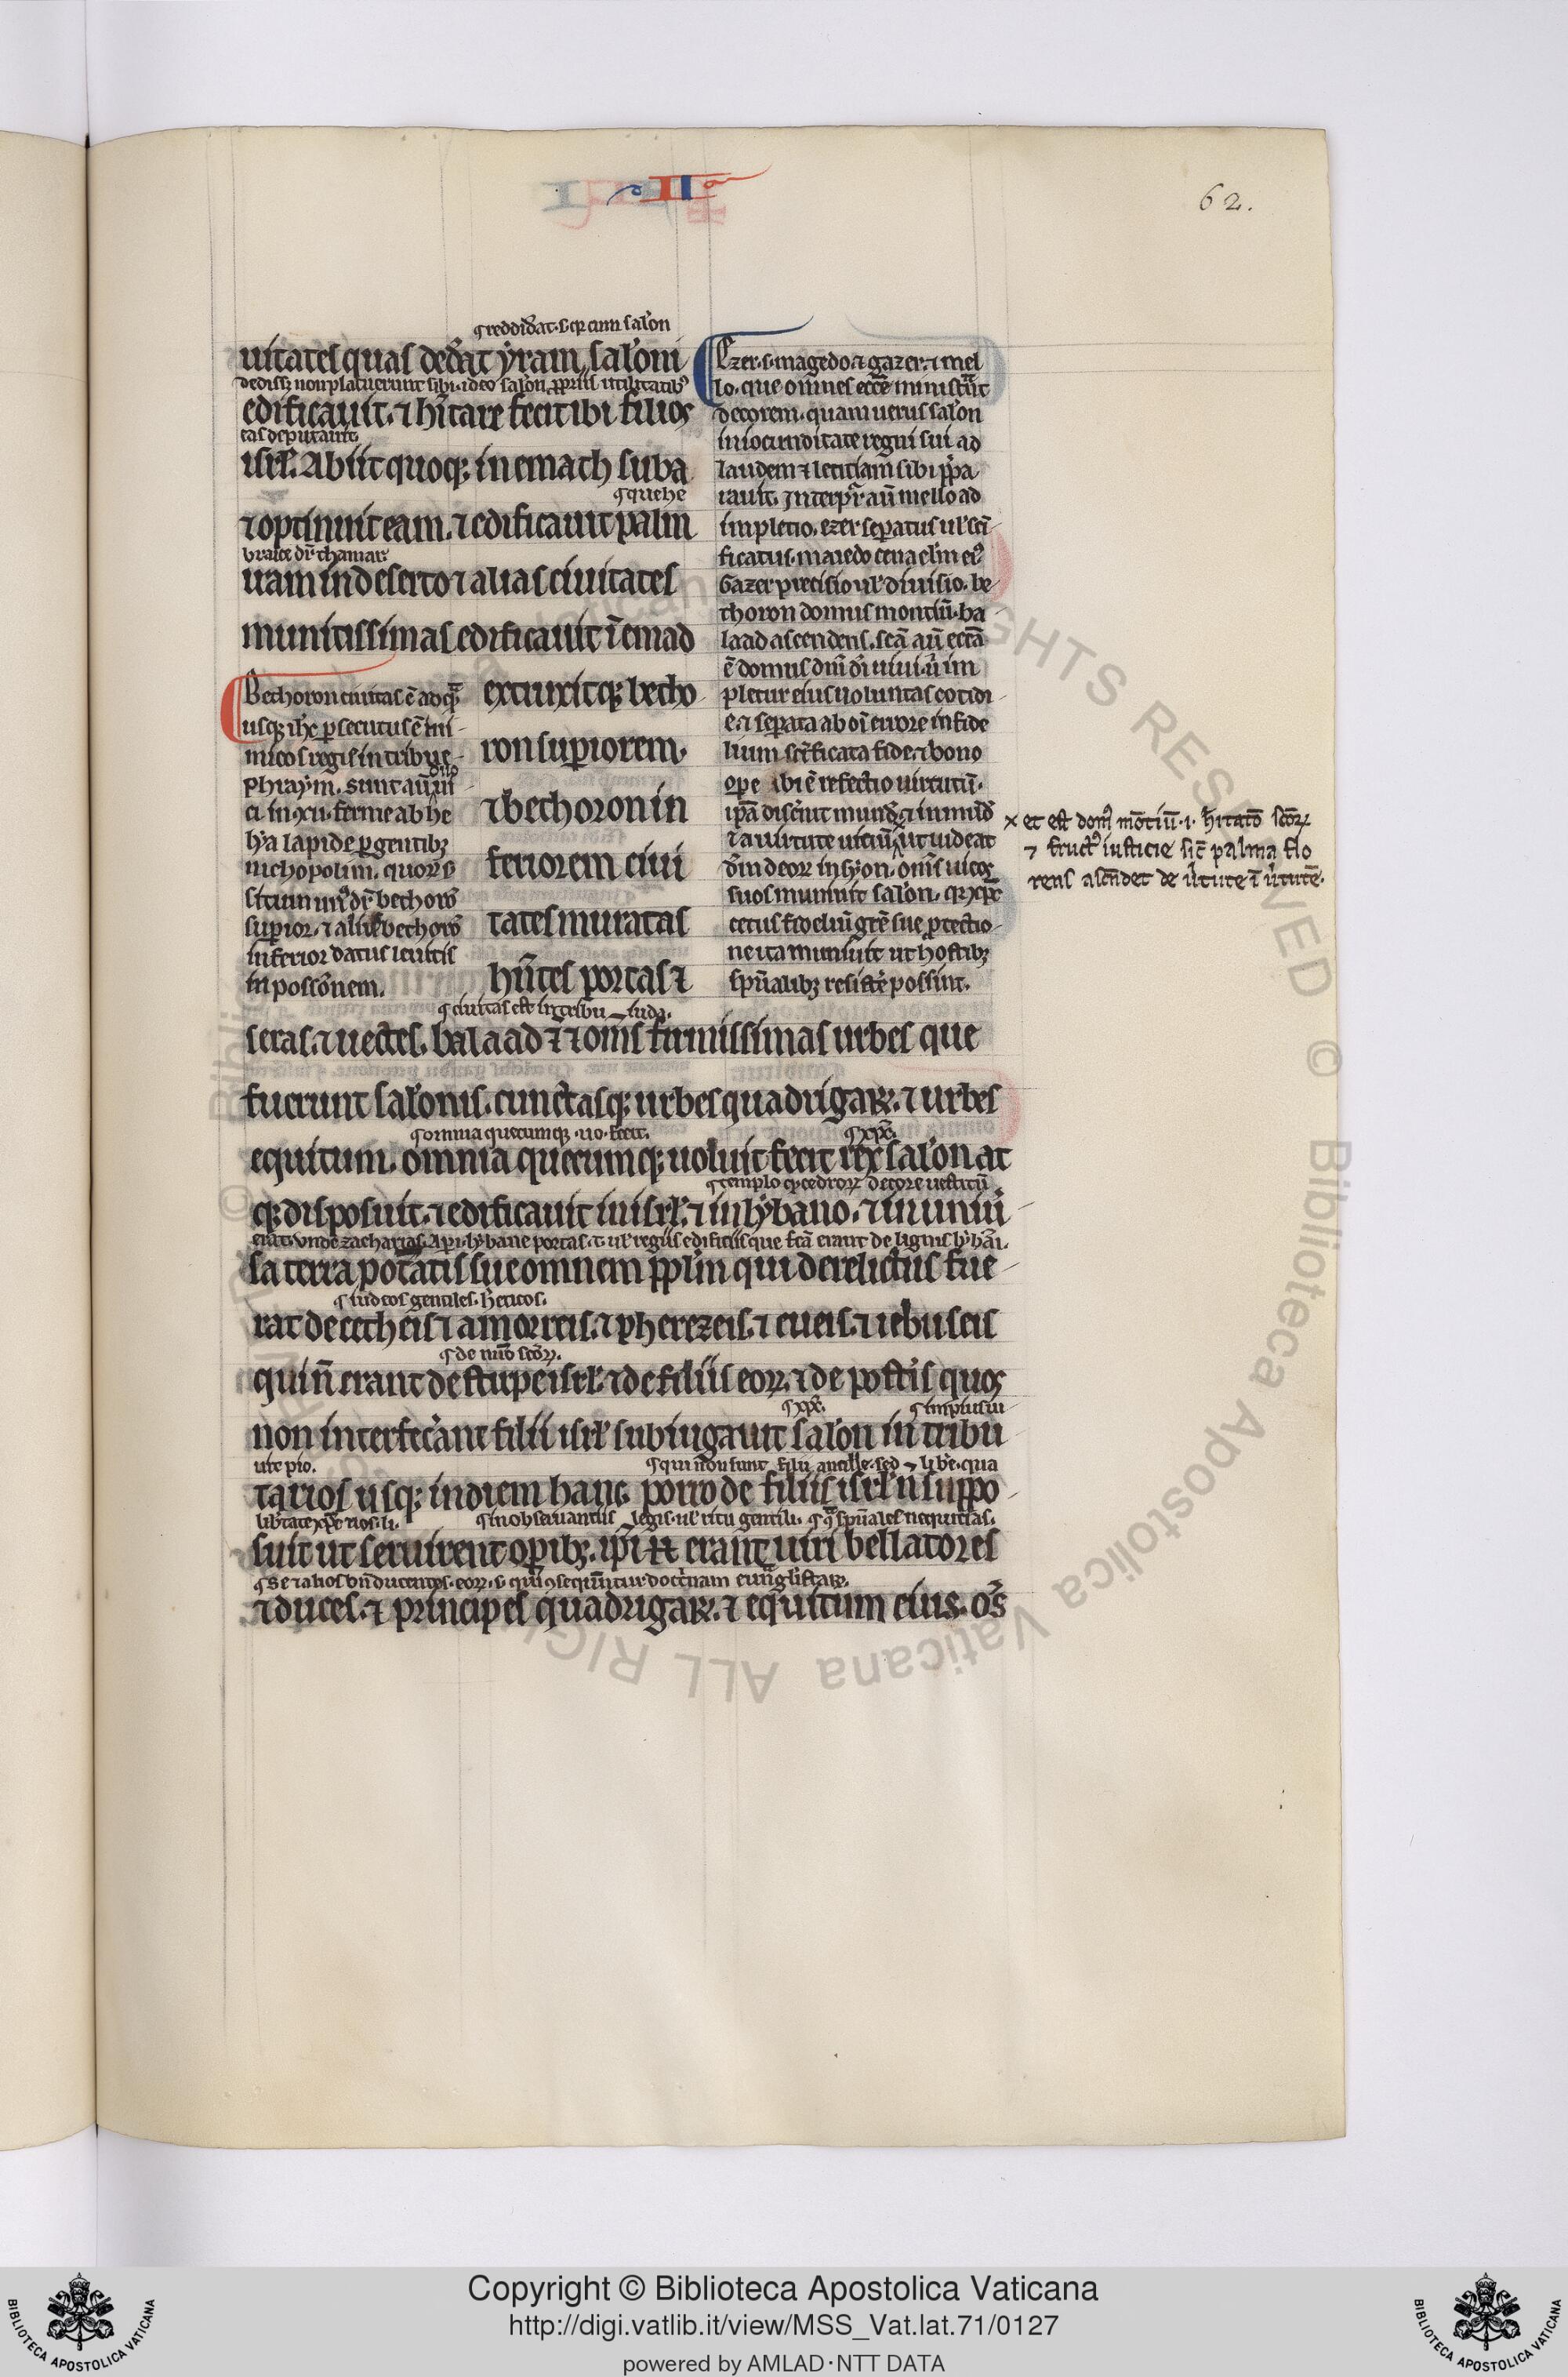 II
62.
⁋ reddid̾at. s. q̾ cum salõn
uitates quas ded̾at ẏram salõni
dedissꝫ non placuerunt sibi. ideo salõn ꝓpriis utilitatibꝰ
edificauit. ⁊ hĩtare fecit ibi filios
eas deputauit.
isrl̃. Abiit quoqꝫ in emath suba
⁋ que he
⁊ optinuit eam. ⁊ edificauit palm
braice dr̃ thamar.
uam in deserto ⁊ alias ciuitates
munitissimas edificauit ĩ emad
Bethoron ciuitas ẽ ad q̃
usqꝫ ih̃c ꝑsecutus ẽ ini
micos regis in tribu e
phraẏm. sunt aũ duo ui
ci in .xii. ferme ab he
lẏa lapide ꝑgentibꝫ
nichopolim. quorꝫ
situm unꝰ dr̃ bethorõ
suꝑior. ⁊ aliꝰ bethorõ
inferior datus leuitis
in possõnem.
extruxitqꝫ betho
ron suꝑiorem.
⁊ bethoron in
feriorem ciui
tates muratas
hñtes portas ⁊
Ezer. s. magedo. ⁊ gazer. ⁊ mel
lo. que omnes ecc̃e ministr̃nt
decorem. quam uerus salõn
in iocunditate regni sui ad
laudem ⁊ letitiam sibi p̃pa
rauit. Interpr̃ aũ mello ad
impletio. ezer seꝑatus ul̃ sc̃i
ficatus. maiedo cenaclm̃ eiꝰ
Gazer precisio ul̃ diuisio. be
thoron domus montiũ. ba
laad ascendens. sc̃a aũ ecc̃a
ẽ domus dñi d̾i uiui. ũ im
pletur eius uoluntas cotidi
e. ⁊ seꝑata ab oĩ errore infide
lium sc̃ificata fide. ⁊ bono
oꝑe ibi ẽ refectio uirtutũ.
ip̃a disc̾nit mundꝫ ⁊ inmũdꝫ
⁊ a uirtute uiciũ ut uideat
d̾m deorꝫ in sẏon. om̃s uicos
suos muniuit salõn. q̾ xp̃c
cetus fideliũ gr̃e sue ꝓtectio
ne ita muniuit ut hostibꝫ
spũalibꝫ resist̾e possint.
× et est domꝰ mõtiũ .i. hĩtatõ sc̃orꝫ
⁊ fructꝰ iusticie sic̃ palma flo
rens ascẽdet de ũtute ĩ ũtutẽ.
⁋ ciuitas est in tribu iuda.
seras. ⁊ uectes. balaad ⁊ ⁊ om̃s firmissimas urbes que
fuerunt salõnis. cunctasqꝫ urbes quadrigarꝫ. ⁊ urbes
⁋ omnia quecumqꝫ uo. fecit. ⁋ xp̃c.
equitum. omnia quecumqꝫ uoluit fecit rex salõn at
⁋ templo q̾ cedrorꝫ decore uestitũ
qꝫ disposuit. ⁊ edificauit in isrl̃. ⁊ in lẏbano. ⁊ in uniũ
erat. unde zacharias. Aꝑi lẏbane portas. t. ul̃ regiis edificiis que fc̃a erant de lignis lẏbãi.
sa terra potãtis sue omnem pp̃lm qui derelictus fue
⁋ iudeos gentiles. h̾eticos.
rat de cetheis ⁊ amorreis. ⁊ pherezeis. ⁊ eueis. ⁊ iebuseis
⁋ de nũo sc̃orꝫ.
qui ñ erant de stirpe isrl̃. ⁊ de filiis eorꝫ. ⁊ de post̾is quos
⁋ xp̃c. ⁋ impius ui
non interfec̾ant filii isrl̃ subiugauit salõn in tribu
uit pio. ⁋ qui non sunt filii ancille. sed lib̾e. qua
tarios usqꝫ in diem hanc. porro de filiis isrl̃ ñ suppo
lib̾tate xp̃c nos. li. ⁋ in obseruantiis legis. ul̃ ritu gentili. ⁋ ꝯ̃ spũales nequitias.
suit ut seruirent oꝑibꝫ. ip̃i .n. erant uiri bellatores
⁋ se ⁊ alios b̃n ducentes. eorꝫ. s. qui ꝯsequũtur doct̾nam euãglistarꝫ.
⁊ duces. ⁊ principes quadrigarꝫ. ⁊ equitum eius. om̃s
Copyright © Biblioteca Apostolica Vaticana
http://digi.vatlib.it/view/MSS_Vat.lat.71/0127
powered by AMLAD·NTT DATA
BIBLIOTECA APOSTOLICA VATICANA
BIBLIOTECA APOSTOLICA VATICANA
© Biblioteca Apostolica Vaticana ALL RIGHTS RESERVED